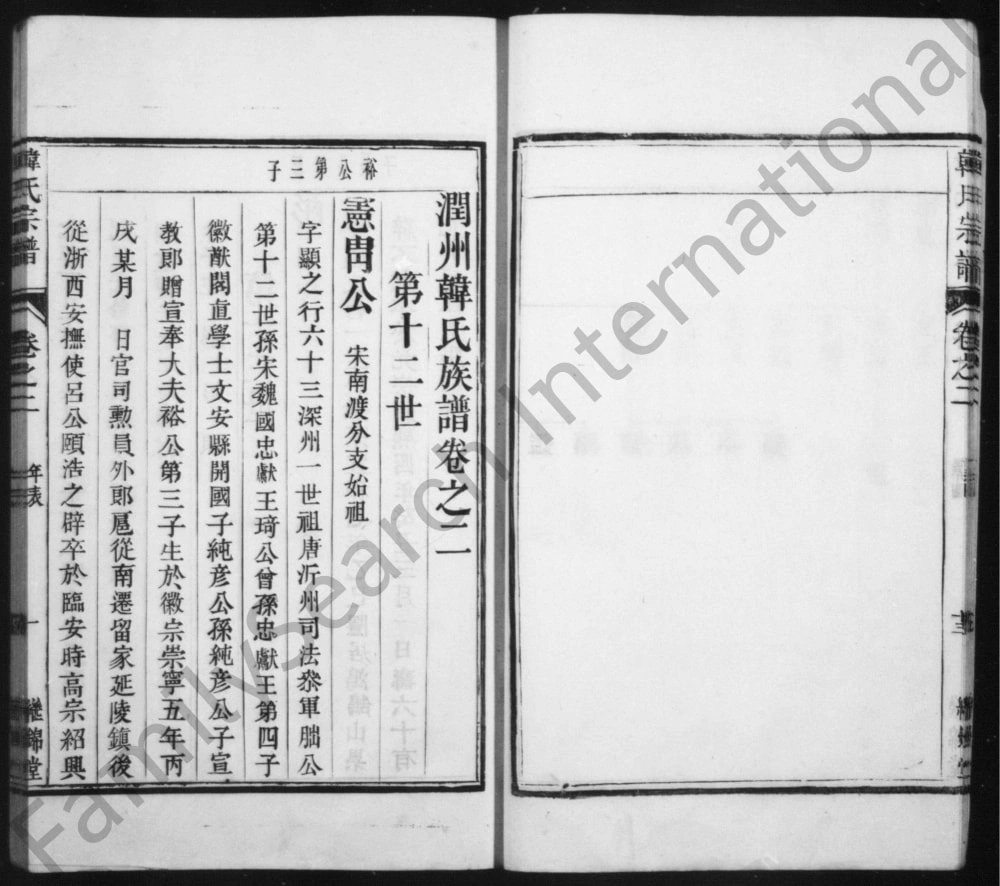 韓氏宗譜
卷之二
裕公第三子
潤州韓氏族譜卷之二
第十二世
憲冑公 宋南渡分支始祖
字顯之行六十三深州一世祖唐沂州司法叅軍朏公
第十二世孫宋魏國忠獻王琦公曾孫忠獻王第四子
徽猷閣直學士文安縣開國子純彥公孫純彥公子宣
教郎贈宣奉大夫裕公第三子生於徽宗崇寧五年丙
戌某月 日官司勳員外郎扈從南遷留家延陵鎮後
從浙西安撫使呂公頤浩之辟卒於臨安時高宗紹興
韓氏宗譜
卷之二
年表
一
繼錦堂
FamilySearch International